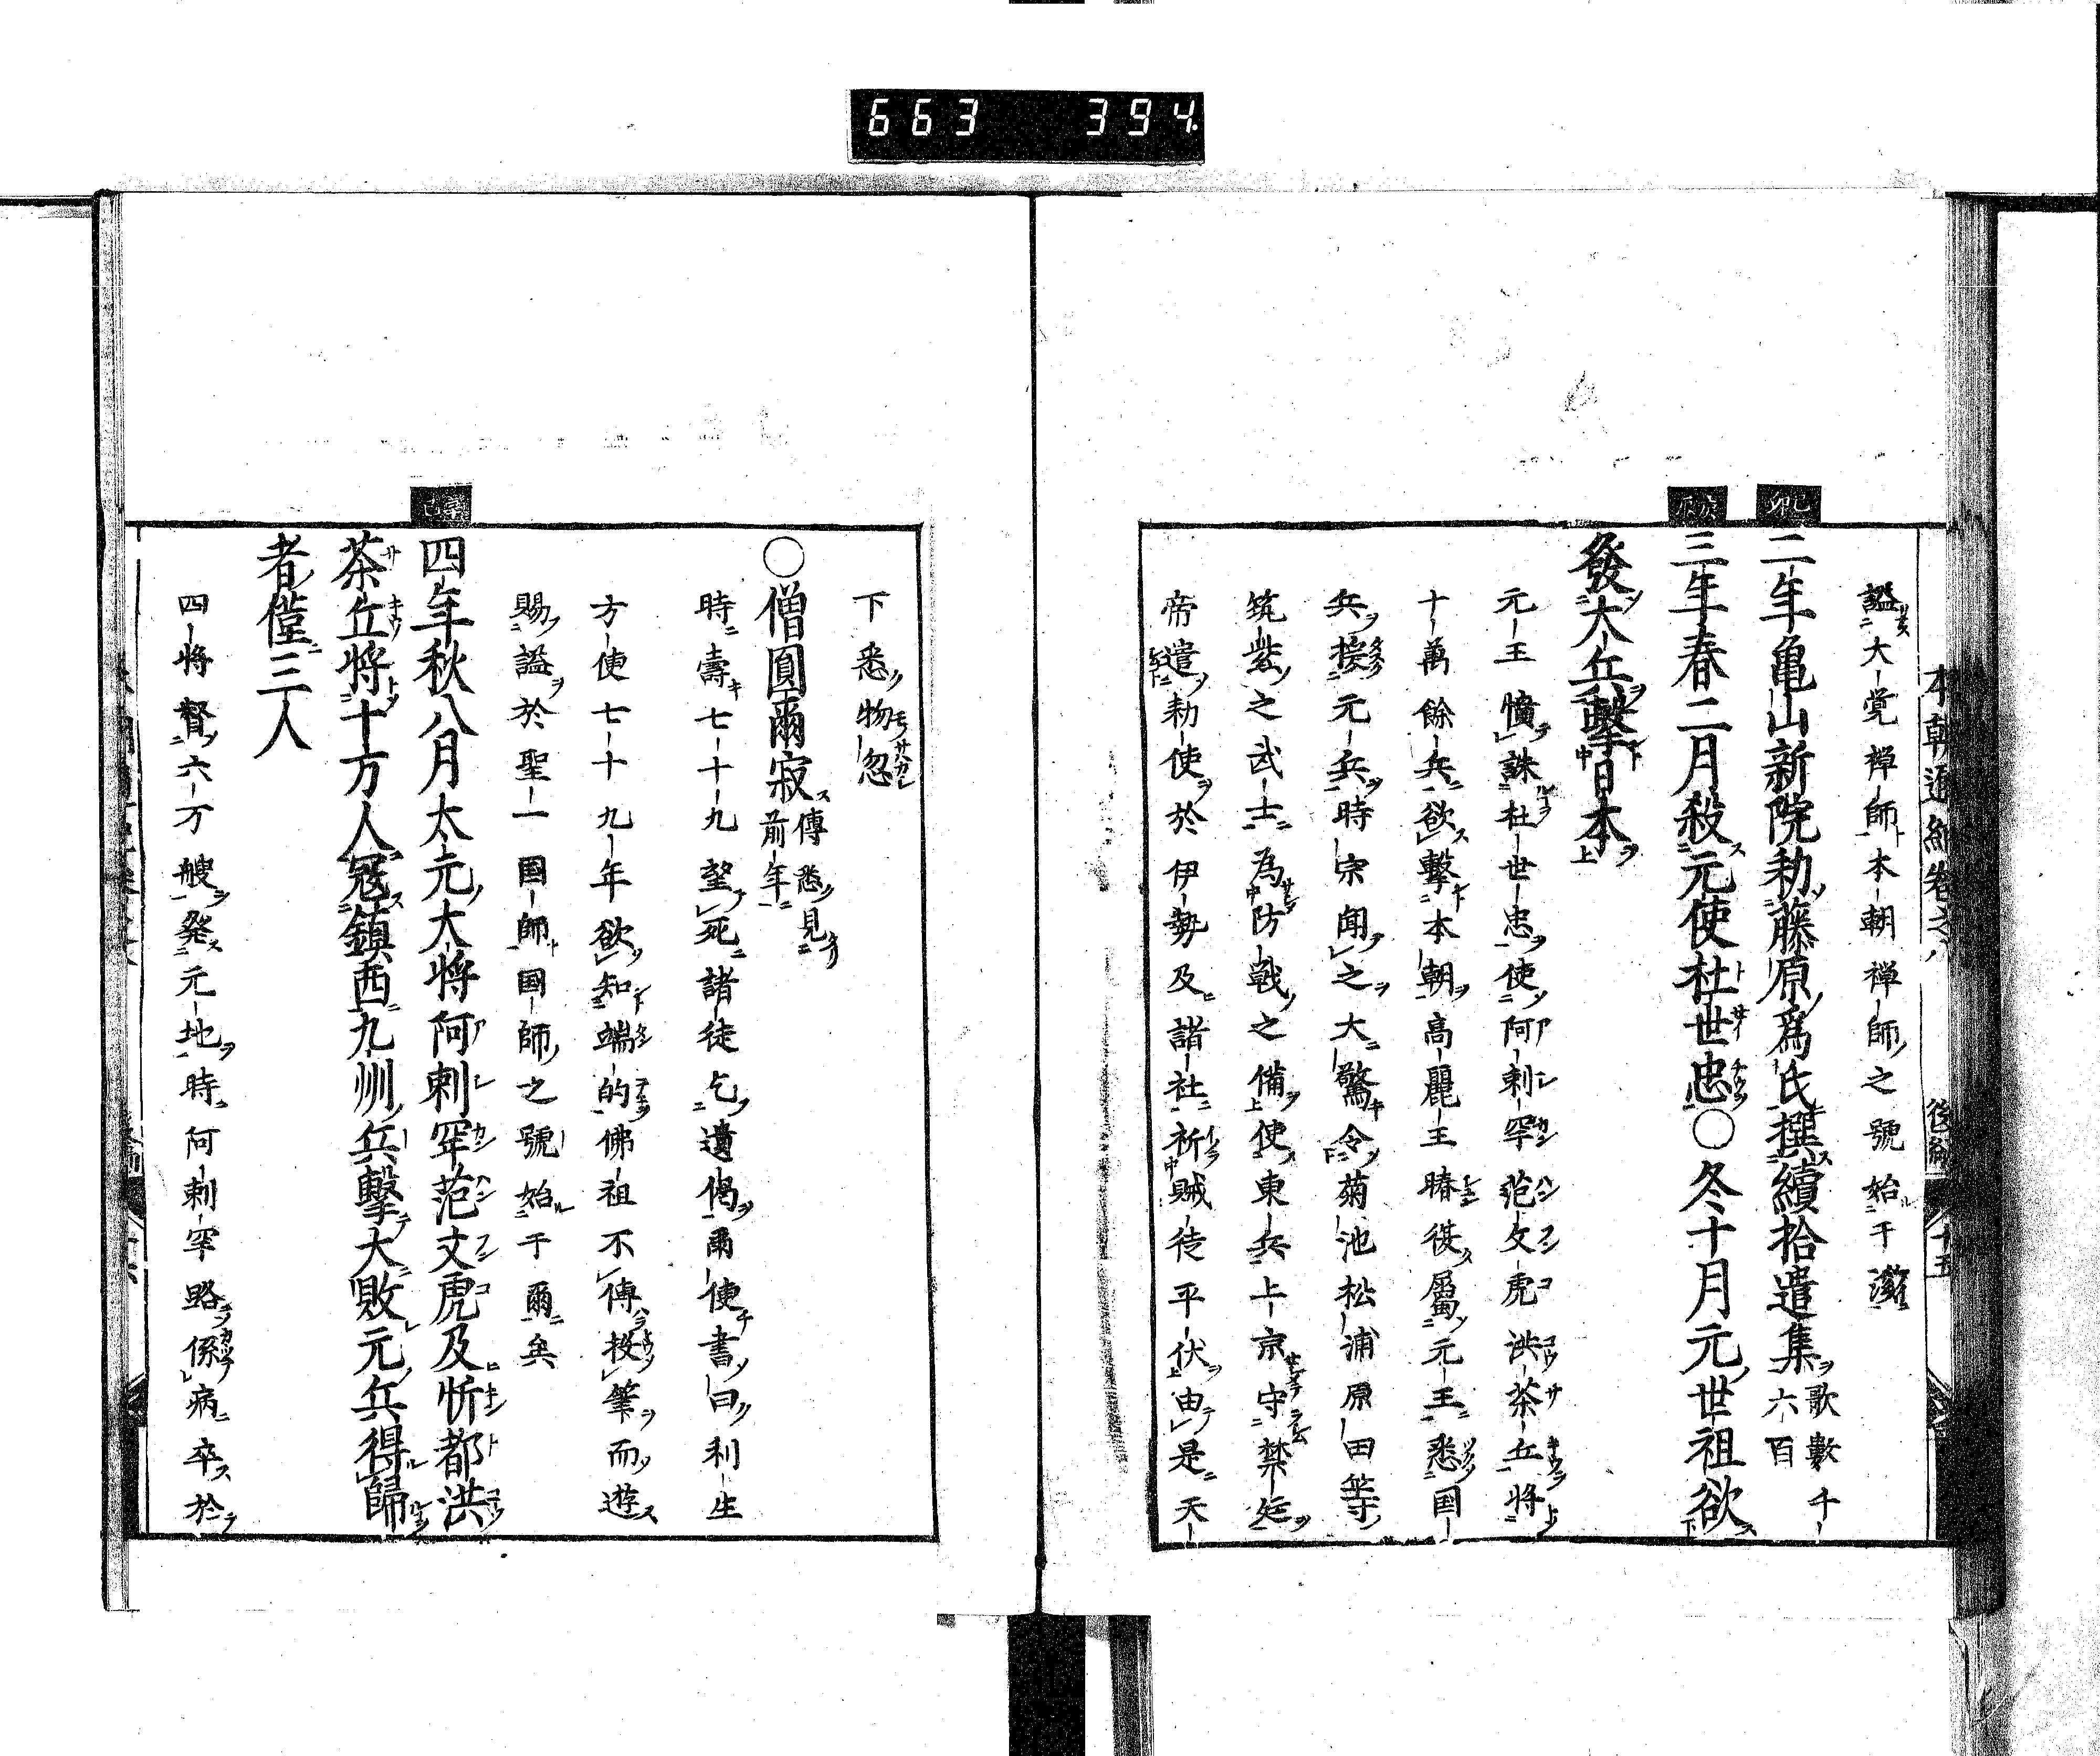 663 394
本朝通紀卷之八 後編 十五
諡大覚禅師本朝禅師之號始于濫
己卯
二年亀山新院勅藤原爲氏撰續拾遺集歌數千六百
庚辰
三年春二月殺元使杜世忠○冬十月元世祖欲
發大兵擊日本
元王憤誅杜世忠使阿剌罕范文虎洪茶丘將
十萬餘兵欲擊本朝高麗王賰従屬元王悉国
兵援元兵時宗聞之大驚令菊池松浦原田等
筑紫之武士為防戦之備使東兵上京守禁𫝶
帝遣勅使於伊勢及諸社祈賊徒平伏由是天
下悉物忽
○僧圓爾寂傳悉見前年
時壽七十九望死諸徒乞遺偈爾使書曰利生
方使七十九年欲知端的佛祖不傳投筆而遊
賜諡於聖一国師国師之號始于爾矣
辛巳
四年秋八月太元大将阿剌罕范文虎及忻都洪
茶丘將十万人冦鎮西九州兵擊大敗元兵得歸
者僅三人
四将督六万艘発元地時阿剌罕路係病卒於